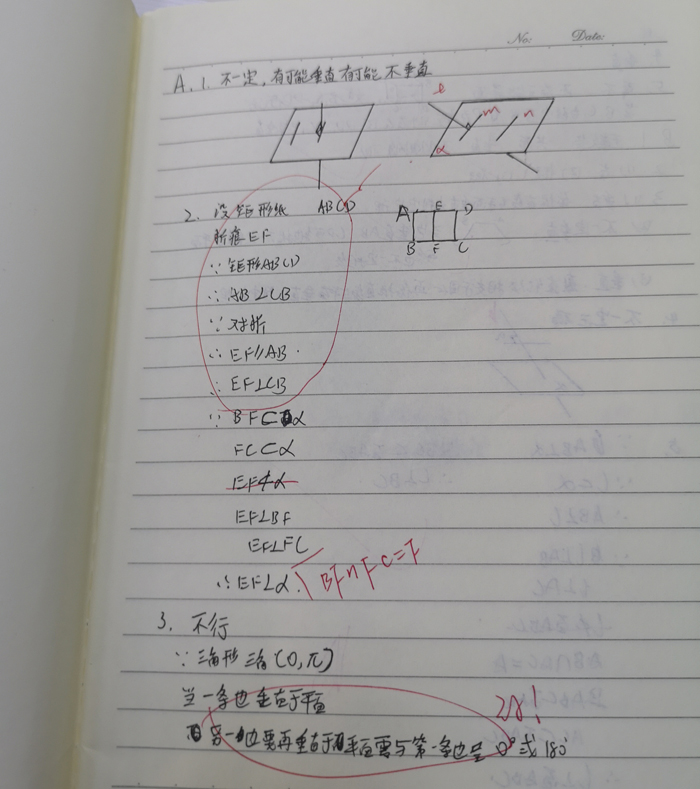 No: Date:
A. 1. 不一定, 有可能垂直有可能不垂直
l m n
α
2. 设矩形纸 ABCD
A E D
折痕EF
B F C
∵ 矩形ABCD
∴ AB⊥CB
∵ 对折
∴ EF∥AB
∴ EF⊥CB
∵ BF⊂α
FC⊂α
EF⊄α
EF⊥BF
EF⊥FC
∴ EF⊥α. BF∩FC=F
3. 不行
∵ 三角形 三角(0,π)
当一条边垂直于平面
另一边要再垂直于平面需与第一条边呈 0° 或 180°